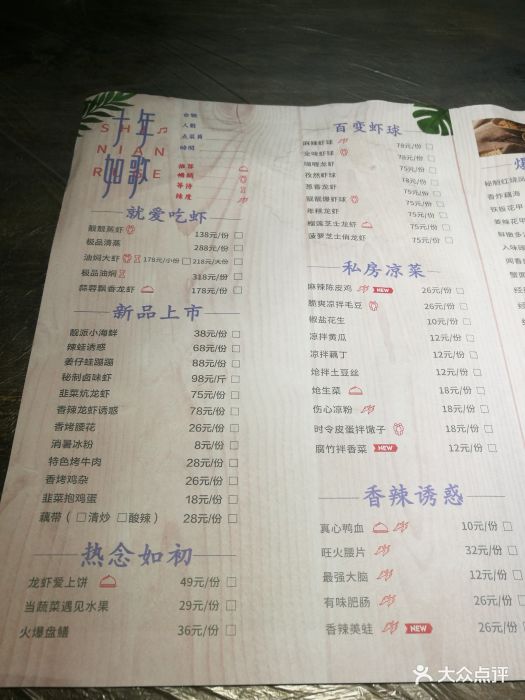 十年
如歌
SHI
NIAN
RUGE
人数
时间
推荐
等待
辣度
就爱吃虾
靓靓蒸虾 138元/份
极品清蒸 288元/份
油焖大虾 178元/小份 218元/大份
极品油焖 318元/份
蒜蓉飘香龙虾 178元/份
新品上市
靓派小海鲜 38元/份
辣蛙诱惑 68元/份
姜仔蛙蹦蹦 88元/份
秘制卤味虾 98元/斤
韭菜炕龙虾 75元/份
香辣龙虾诱惑 78元/份
香烤腰花 26元/份
消暑冰粉 8元/份
特色烤牛肉 28元/份
香烤鸡杂 26元/份
韭菜抱鸡蛋 18元/份
藕带（□清炒 □酸辣） 28元/份
热念如初
龙虾爱上饼 49元/份
当蔬菜遇见水果 29元/份
火爆盘鳝 36元/份
百变虾球
麻辣虾球 78元/份
全味虾球 78元/份
孜然虾球 78元/份
葱香龙虾 75元/份
靓靓爆虾球 75元/份
年糕龙虾 75元/份
榴莲芝士龙虾 75元/份
菠萝芝士俏龙虾 75元/份
私房凉菜
麻辣陈皮鸡 NEW 26元/份
脆爽凉拌毛豆 26元/份
椒盐花生 10元/份
凉拌黄瓜 12元/份
凉拌藕丁 12元/份
炝拌土豆丝 12元/份
炝生菜 18元/份
伤心凉粉 18元/份
时令皮蛋拌馓子 18元/份
腐竹拌香菜 NEW 12元/份
香辣诱惑
真心鸭血 10元/份
旺火腰片 32元/份
最强大脑 12元/份
有味肥肠 26元/份
香辣美蛙 NEW 26元/份
香炸藕海
铁板花甲
大众点评